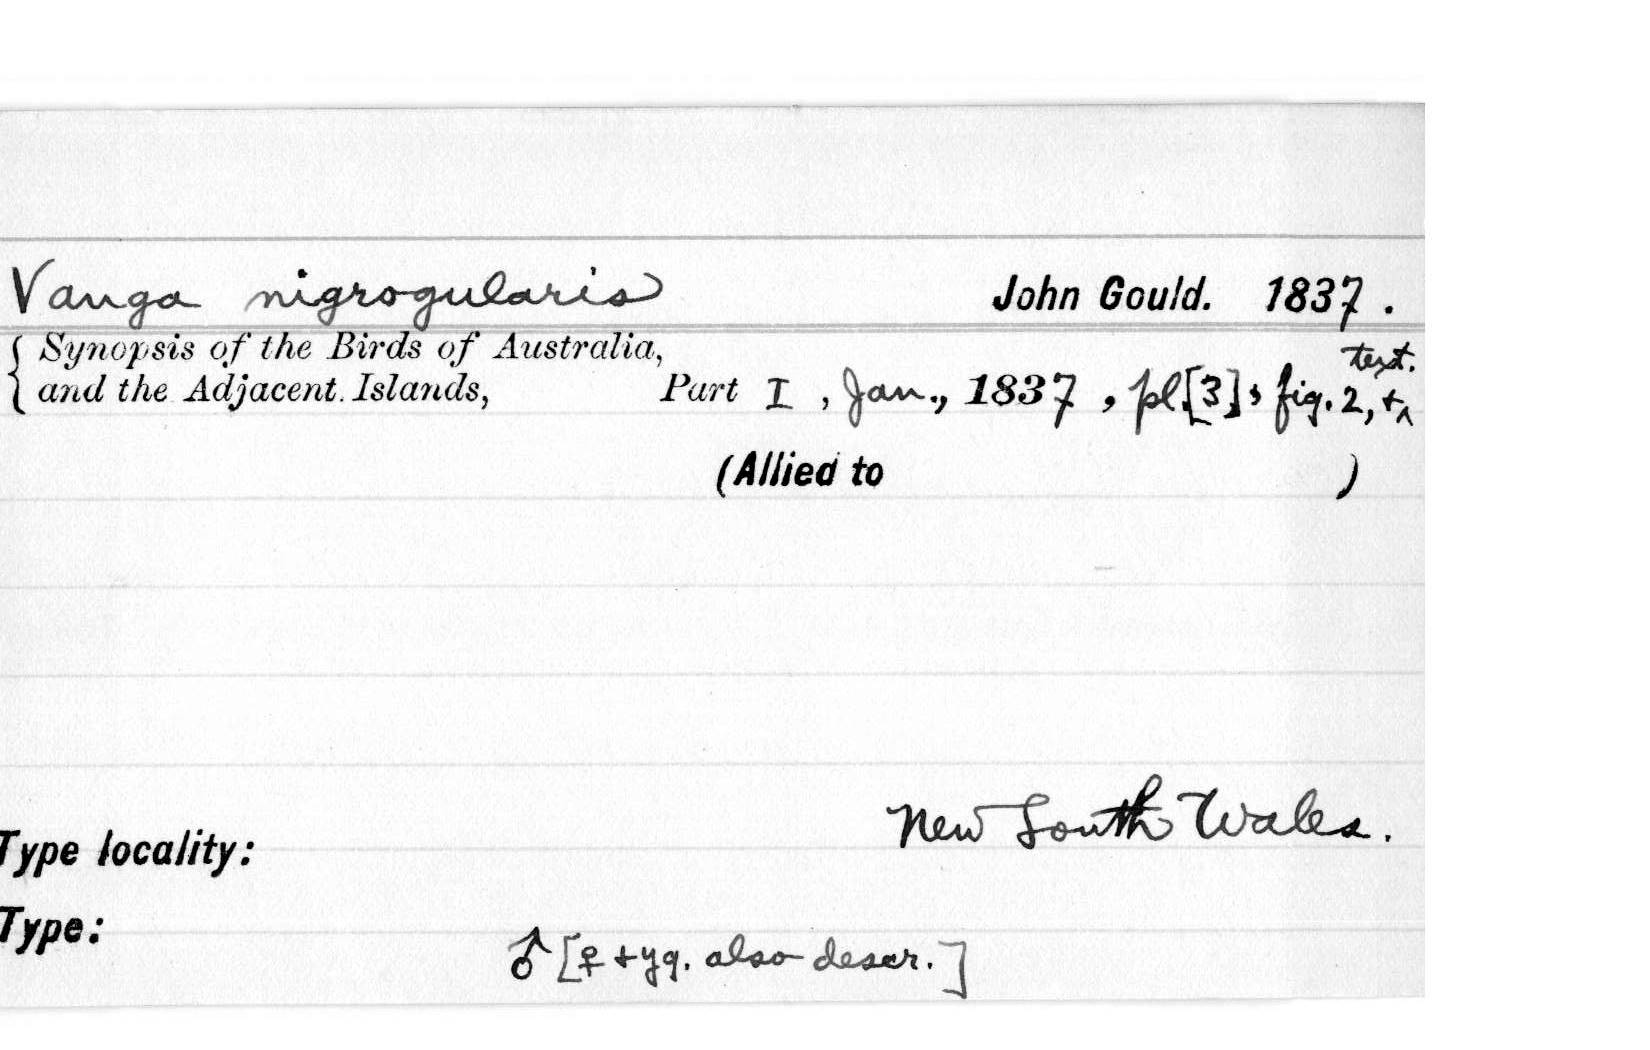 Vanga nigrogularis John Gould. 1837.
{ Synopsis of the Birds of Australia,
and the Adjacent Islands, Part I, Jan., 1837, pl.[3], fig. 2, + text.
(Allied to )
New South Wales.
Type locality:
Type:
♂ [♀ + yg. also descr.]